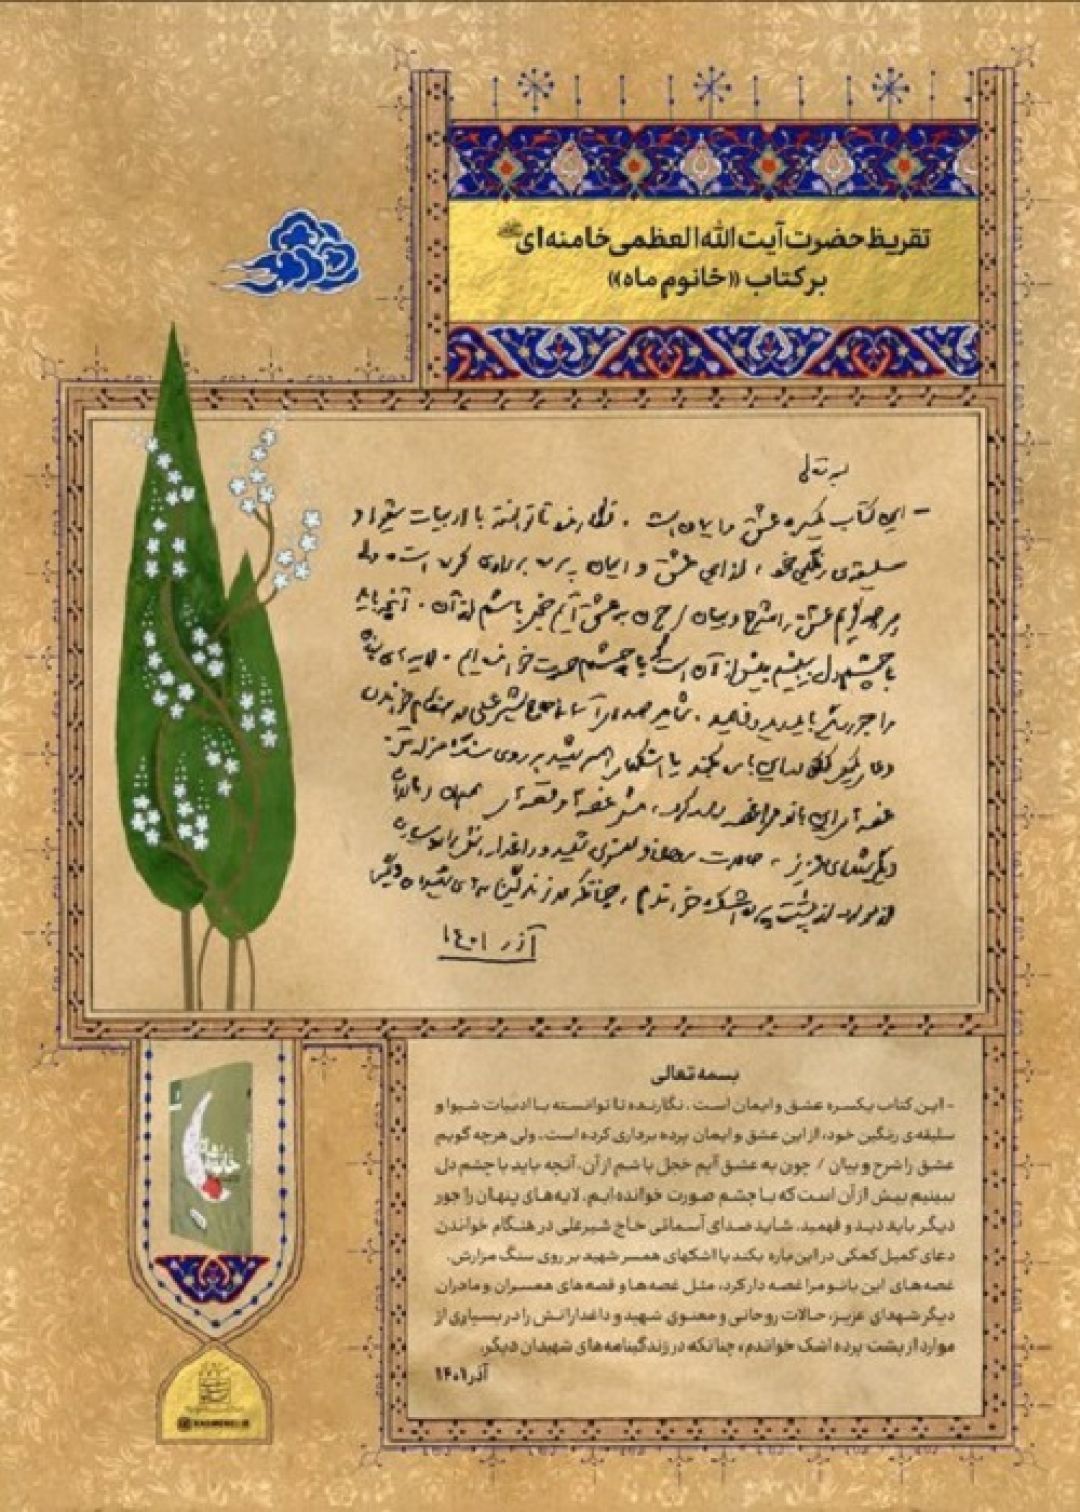 تقریظ حضرت آیت الله العظمی خامنه‌ای
بر کتاب «خانوم ماه»
بسمه تعالی
- این کتاب یکسره عشق و ایمان است . نگارنده تا توانسته با ادبیات شیوا و
سلیقه‌ی رنگین خود ، از این عشق و ایمان پرده برداری کرده است ولی
هر چه گویم عشق را شرح و بیان / چون به عشق آیم خجل باشم از آن . آنچه باید
با چشم دل ببینیم بیش از آن است که با چشم صورت خوانده ایم . لایه‌های پنهان
را جور دیگر باید دید و فهمید . شاید صدای آسمانی حاج شیرعلی در هنگام خواندن
دعای کمیل کمکی در این باره بکند یا اشکهای همسر شهید بر روی سنگ مزارش.
غصه‌های این بانو مرا غصه دار کرد ، مثل غصه‌ها و قصه‌های همسران و مادران
دیگر شهدای عزیز ، حالات روحانی و معنوی شهید و داغدارانش را در بسیاری
از موارد از پشت پرده اشک خواندم ، چنانکه در زندگینامه‌های شهیدان دیگر
آذر ۱۴۰۱
بسمه تعالی
- این کتاب یکسره عشق و ایمان است . نگارنده تا توانسته با ادبیات شیوا و
سلیقه‌ی رنگین خود، از این عشق و ایمان پرده برداری کرده است. ولی هرچه گویم
عشق را شرح و بیان / چون به عشق آیم خجل باشم از آن. آنچه باید با چشم دل
ببینیم بیش از آن است که با چشم صورت خوانده ایم. لایه‌های پنهان را جور
دیگر باید دید و فهمید. شاید صدای آسمانی حاج شیرعلی در هنگام خواندن
دعای کمیل کمکی در این باره بکند یا اشکهای همسر شهید بر روی سنگ مزارش.
غصه‌های این بانو مرا غصه دار کرد، مثل غصه‌ها و قصه‌های همسران و مادران
دیگر شهدای عزیز، حالات روحانی و معنوی شهید و داغدارانش را در بسیاری از
موارد از پشت پرده اشک خواندم، چنانکه در زندگینامه‌های شهیدان دیگر.
آذر ۱۴۰۱
KHAMENEI.IR